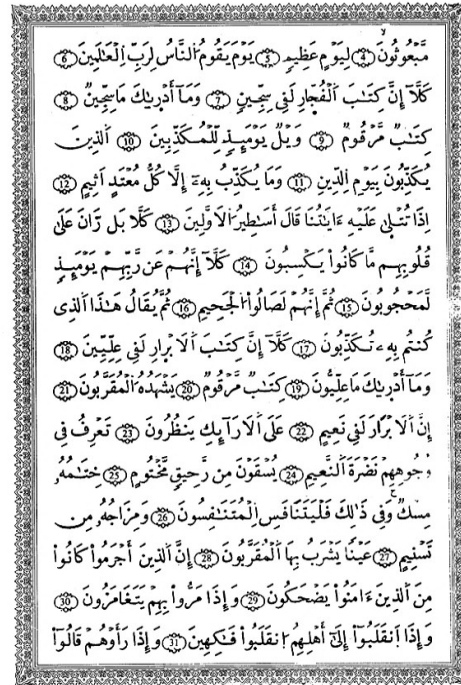 مَّبْعُوثُونَ ④ لِيَوْمٍ عَظِيمٍ ⑤ يَوْمَ يَقُومُ اُلنَّاسُ لِرَبِّ اِلْعَٰلَمِينَ ⑥
كَلَّآ إِنَّ كِتَٰبَ اَلْفُجَّارِ لَفِے سِجِّينٍ ⑦ وَمَآ أَدْر۪يٰكَ مَا سِجِّينٌ ⑧
كِتَٰبٌ مَّرْقُومٌ ⑨ وَيْلٌ يَوْمَئِذٍ لِّلْمُكَذِّبِينَ ⑩ اَلذِينَ
يُكَذِّبُونَ بِيَوْمِ اِلدِّينِ ⑪ وَمَا يُكَذِّبُ بِهِۦٓ إِلَّا كُلُّ مُعْتَدٍ اَثِيمٍ ⑫
اِذَا تُتْلَىٰ عَلَيْهِ ءَايَٰتُنَا قَالَ أَسَٰطِيرُ اُلَاوَّلِينَ ⑬ كَلَّا بَل رَّانَ عَلَىٰ
قُلُوبِهِم مَّا كَانُواْ يَكْسِبُونَ ⑭ كَلَّآ إِنَّهُمْ عَن رَّبِّهِمْ يَوْمَئِذٍ
لَّمَحْجُوبُونَ ⑮ ثُمَّ إِنَّهُمْ لَصَالُواْ اُلْجَحِيمِ ⑯ ثُمَّ يُقَالُ هَٰذَا اَلذِے
كُنتُم بِهِۦ تُكَذِّبُونَ ⑰ كَلَّآ إِنَّ كِتَٰبَ اَلَابْرارِ لَفِے عِلِّيِّينَ ⑱
وَمَآ أَدْر۪يٰكَ مَا عِلِّيُّونَ ⑲ كِتَٰبٌ مَّرْقُومٌ ⑳ يَشْهَدُهُ اُلْمُقَرَّبُونَ ㉑
إِنَّ اَلَابْرَارَ لَفِے نَعِيمٍ ㉒ عَلَى اَلَارَآئِكِ يَنظُرُونَ ㉓ تَعْرِفُ فِے
وُجُوهِهِمْ نَضْرَةَ اَلنَّعِيمِ ㉔ يُسْقَوْنَ مِن رَّحِيقٍ مَّخْتُومٍ ㉕ خِتَٰمُهُۥ
مِسْكٌ وَفِے ذَٰلِكَ فَلْيَتَنَافَسِ اِلْمُتَنَٰفِسُونَ ㉖ وَمِزَاجُهُۥ مِن
تَسْنِيمٍ ㉗ عَيْناً يَشْرَبُ بِهَا اَلْمُقَرَّبُونَ ㉘ إِنَّ اَلذِينَ أَجْرَمُواْ كَانُواْ
مِنَ اَلذِينَ ءَامَنُواْ يَضْحَكُونَ ㉙ وَإِذَا مَرُّواْ بِهِمْ يَتَغَامَزُونَ ㉚
وَإِذَا اَنقَلَبُوٓاْ إِلَىٰٓ أَهْلِهِمُ اُنقَلَبُواْ فَٰكِهِينَ ㉛ وَإِذَا رَأَوْهُمْ قَالُوٓاْ